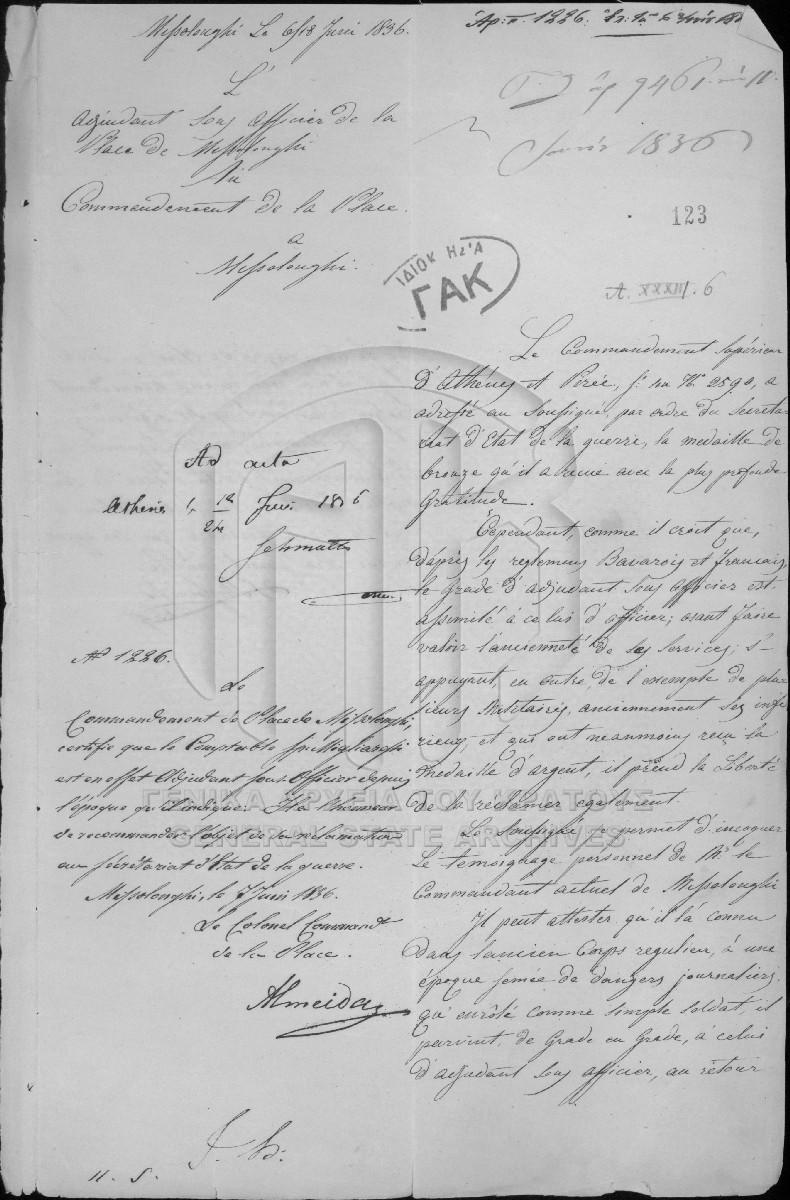 Messolonghi Le 6/18 Juin 1836.
L'
Adjudant Sous Officier de la
Place de Messolonghi
Au
Commendement de la Place.
a
Messolonghi.
1226.
9461
1836
123
ΙΔΙΟΚ ΗΣΙΑ
ΓΑΚ
A. XXXII. 6
Le Commandement Supérieur
d'Athénes et Pirée, sr. sa No. 2590, a
adressé au Soussigné, par ordre du Secreta-
riat d'Etat de la guerre, la medaille de
bronze qu'il a recue avec la plus profonde
gratitude.
Cependant, comme il croit que,
d'après les reglemens Bavarois et francais,
le grade d'adjudant Sous Officier est
assimité à celui d'officier; osant faire
valoir l'ancienneté de ses services; s'-
appuyant, en outre de l'exemple de plu-
sieurs Militaires, anciennement ses infé-
rieurs, et qui ont neanmoins recu la
medaille d'argent, il prend la Liberté
de la réclamer également.
Le Soussigné se permet d'invoquer
Le temoignage personnel de Mr. le
Commandant actuel de Messolonghi
Il peut attester qu'il l'a connu
Dans l'ancien Corps regulier, à une
époque semée de dangers journaliers,
qu'enrôlé comme simple soldat, il
parvint, de Grade en Grade, à celui
d'adjudant Sous officier, au retour
Ad acta
Athenes 12/24 Juin 1836
Schmaltz
No 1226.
Le
Commandement de Place de Messolonghi,
certifie que le Comptable
est en effet Adjudant sous Officier depuis
l'époque qu'il indique. Il a l'honneur
de recommander l'objet de sa réclamation
au Sécrétariat d'Etat de la guerre.
Messolonghi, le 7 Juin 1836.
Le Colonel Commandt
de la Place.
Almeida
ΓΕΝΙΚΑ ΑΡΧΕΙΑ ΤΟΥ ΚΡΑΤΟΥΣ
GENERAL STATE ARCHIVES